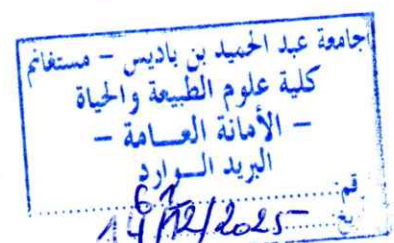 جامعة عبد الحميد بن باديس – مستغانم
كلية علوم الطبيعة والحياة
– الأمانة العـــامة –
البريد الـــوارد
قم:
يخ: 14/12/2025